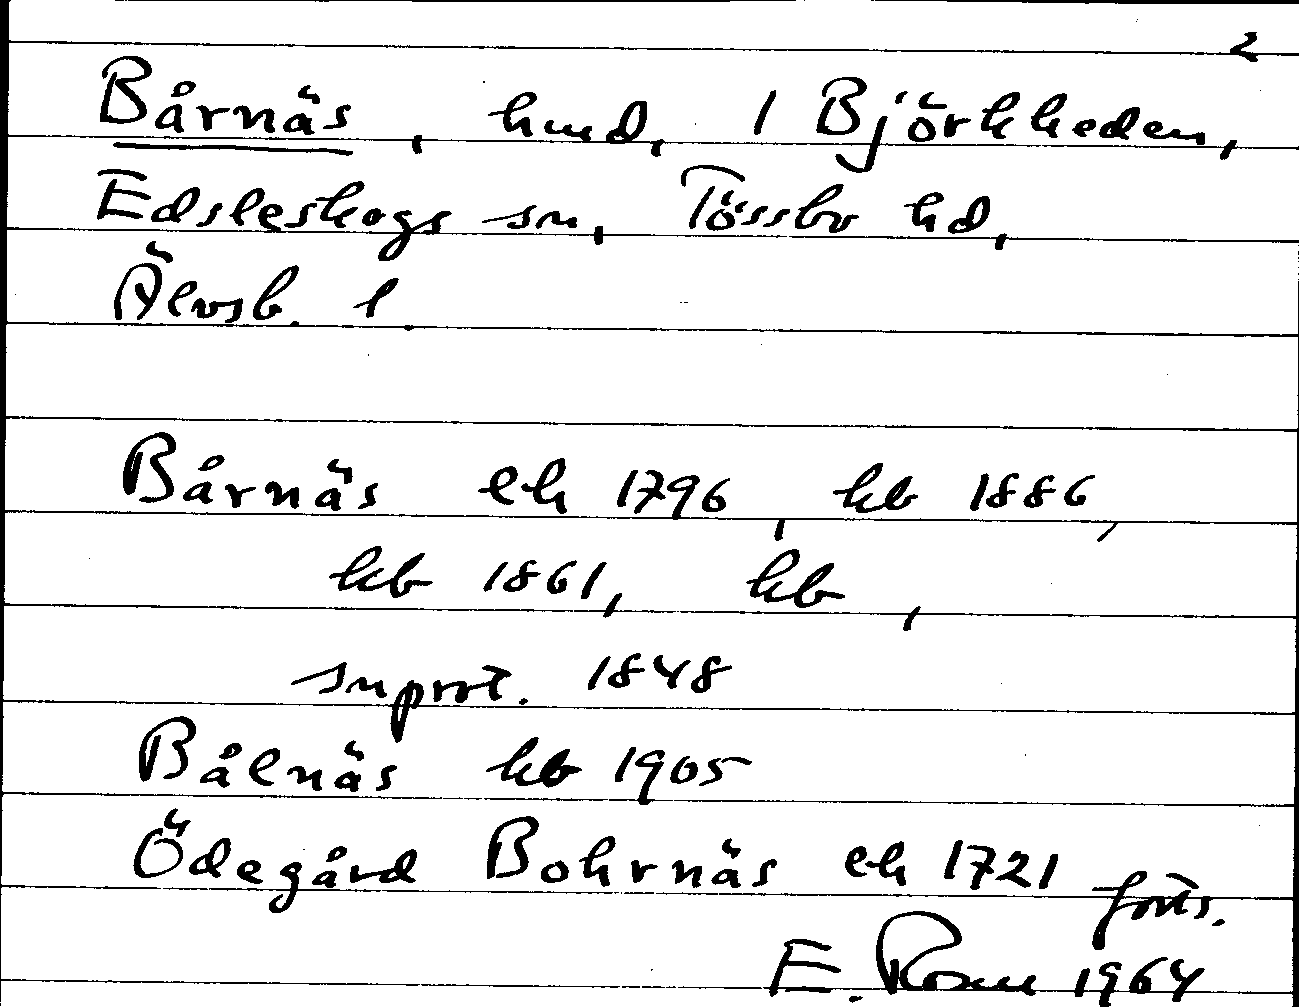 2
Bårnäs, hmd, 1 Björkheden,
Edsleskogs sn, Tössbo hd,
Älvsb. l.
Bårnäs ek 1796, kb 1886,
kb 1861, kb ,
snprot. 1848
Bålnäs kb 1905
Ödegård Bohrnäs ek 1721
forts.
E. Rosne 1964